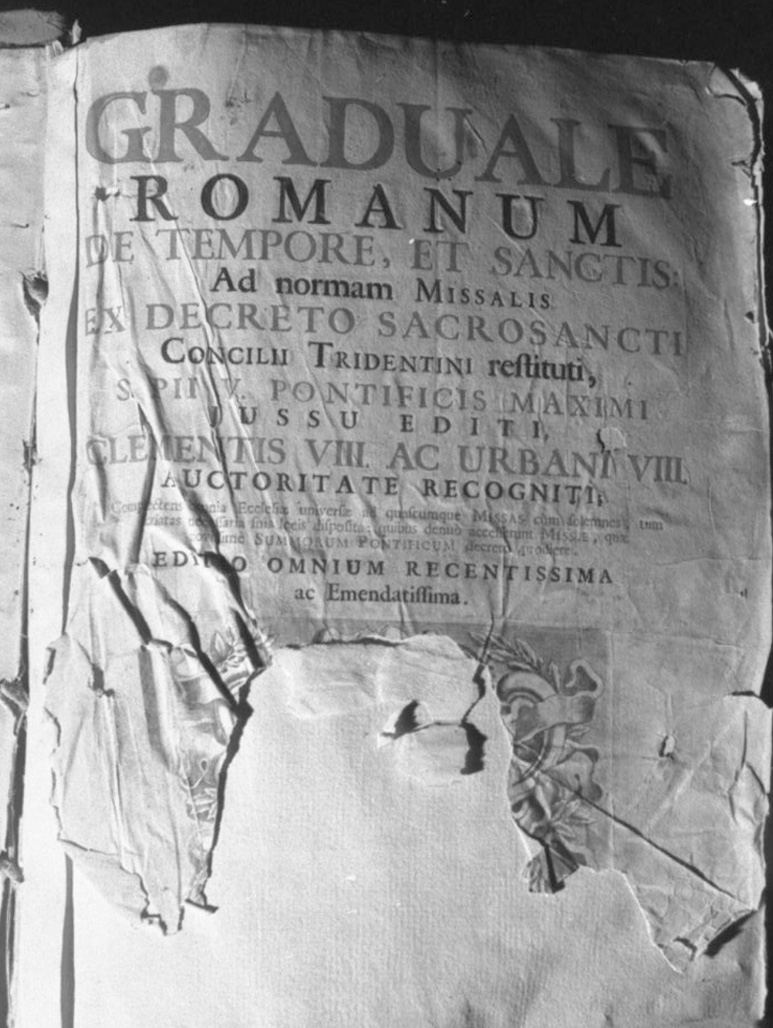 GRADUALE
ROMANUM
DE TEMPORE, ET SANCTIS:
Ad normam MISSALIS
EX DECRETO SACROSANCTI
CONCILII TRIDENTINI reſtituti,
S. PII V. PONTIFICIS MAXIMI
JUSSU EDITI,
CLEMENTIS VIII. AC URBANI VIII.
AUCTORITATE RECOGNITI;
omnia Eccleſiæ univerſæ ad quaſcumque MISSAS cum ſolemnes, tum
ſuis locis diſpoſita: quibus denuò acceſſerunt MISSÆ, quæ
SUMMORUM PONTIFICUM decreto
EDITIO OMNIUM RECENTISSIMA
ac Emendatiſſima.